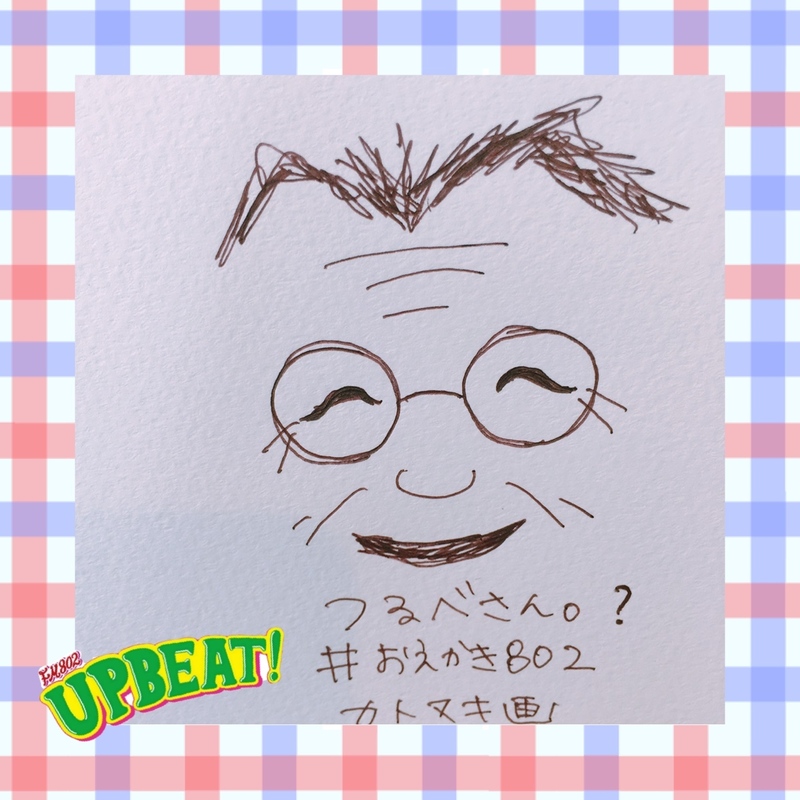 つるべさん。?
#おえかき802
カトヌキ画
FM802
UPBEAT!